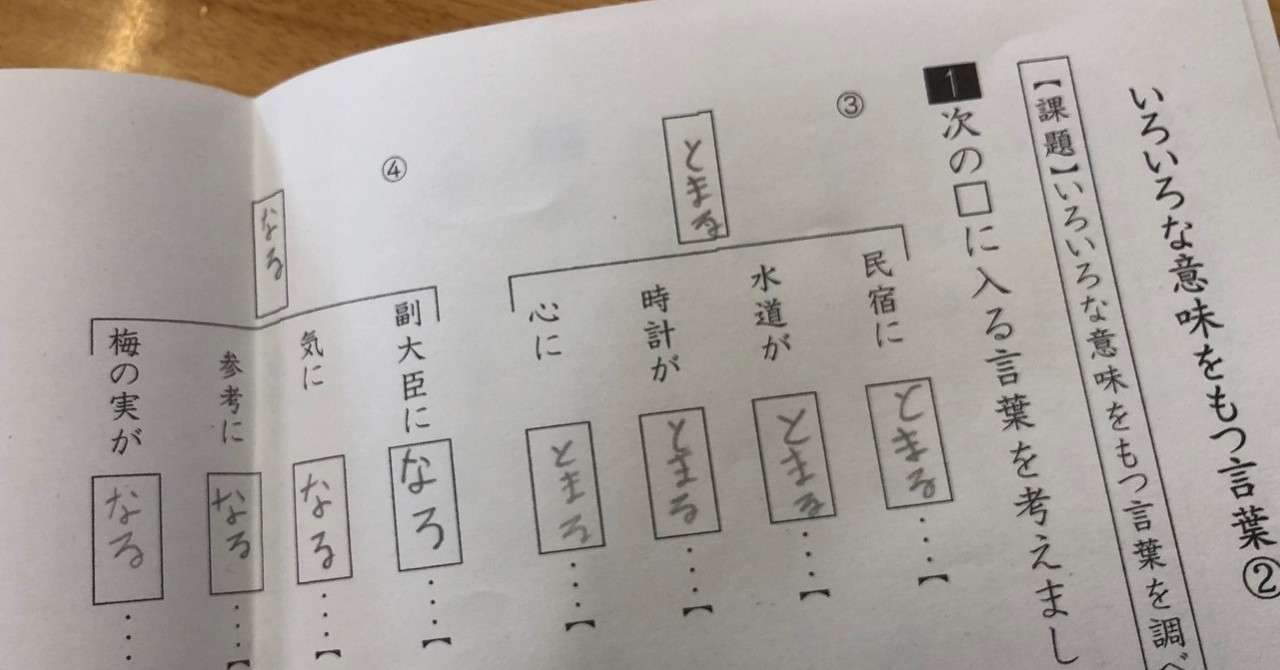 いろいろな意味をもつ言葉②
【課題】いろいろな意味をもつ言葉を調べ
1 次の□に入る言葉を考えまし
③
とまる
民宿に とまる …【
水道が とまる …【
時計が とまる …【
心に とまる …【
④
なる
副大臣に なろ …【
気に なる …【
参考に なる …【
梅の実が なる …